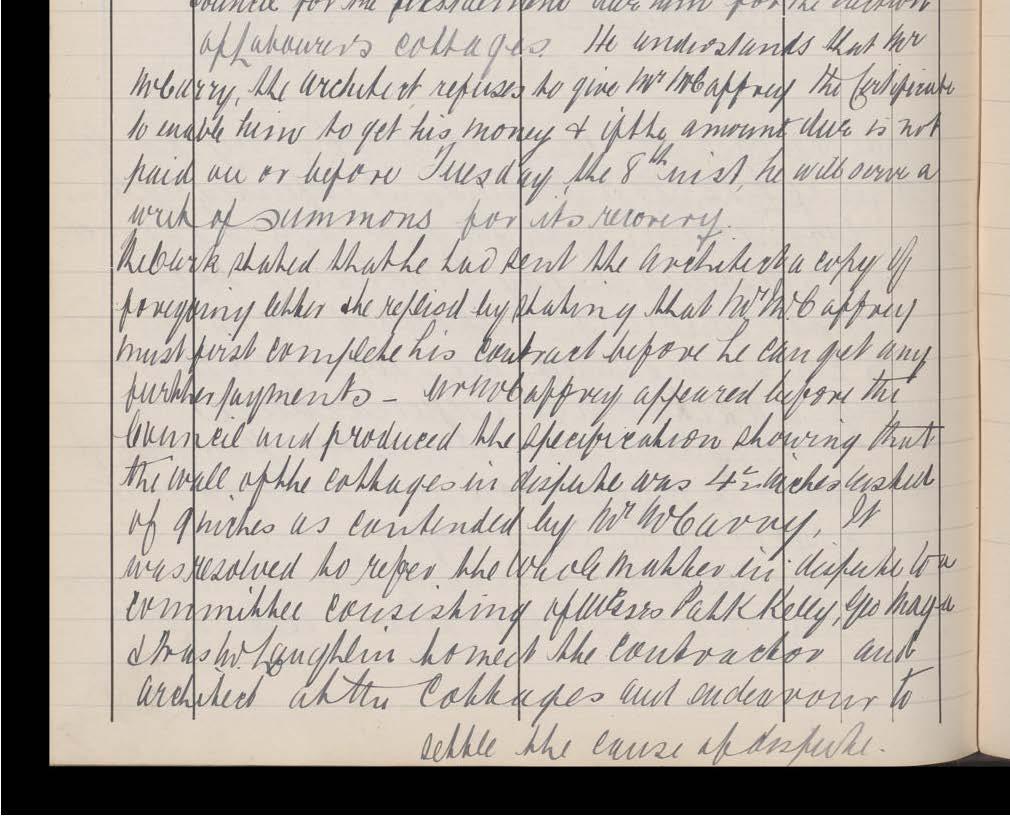 Council for the
of Labourers cottages. He understands that Mr
McCarry, the architect refuses to give Mr McCaffrey the Certificate
to enable him to get his money & if the amount due is not
paid on or before Tuesday, the 8th inst, he will serve a
writ of summons for its recovery.
The Clerk stated that he had sent the architect a copy of
foregoing letter & he replied by stating that Mr McCaffrey
must first complete his contract before he can get any
further payments - Mr McCaffrey appeared before the
Council and produced the specification showing that
the wall of the cottages in dispute was 4½ inches instead
of 9 inches as contended by Mr McCarry. It
was resolved to refer the whole matter in dispute to a
committee consisting of Messrs Patk Kelly, Geo
& McLaughlin to meet the contractor and
architect at the Cottages and endeavour to
settle the cause of dispute.